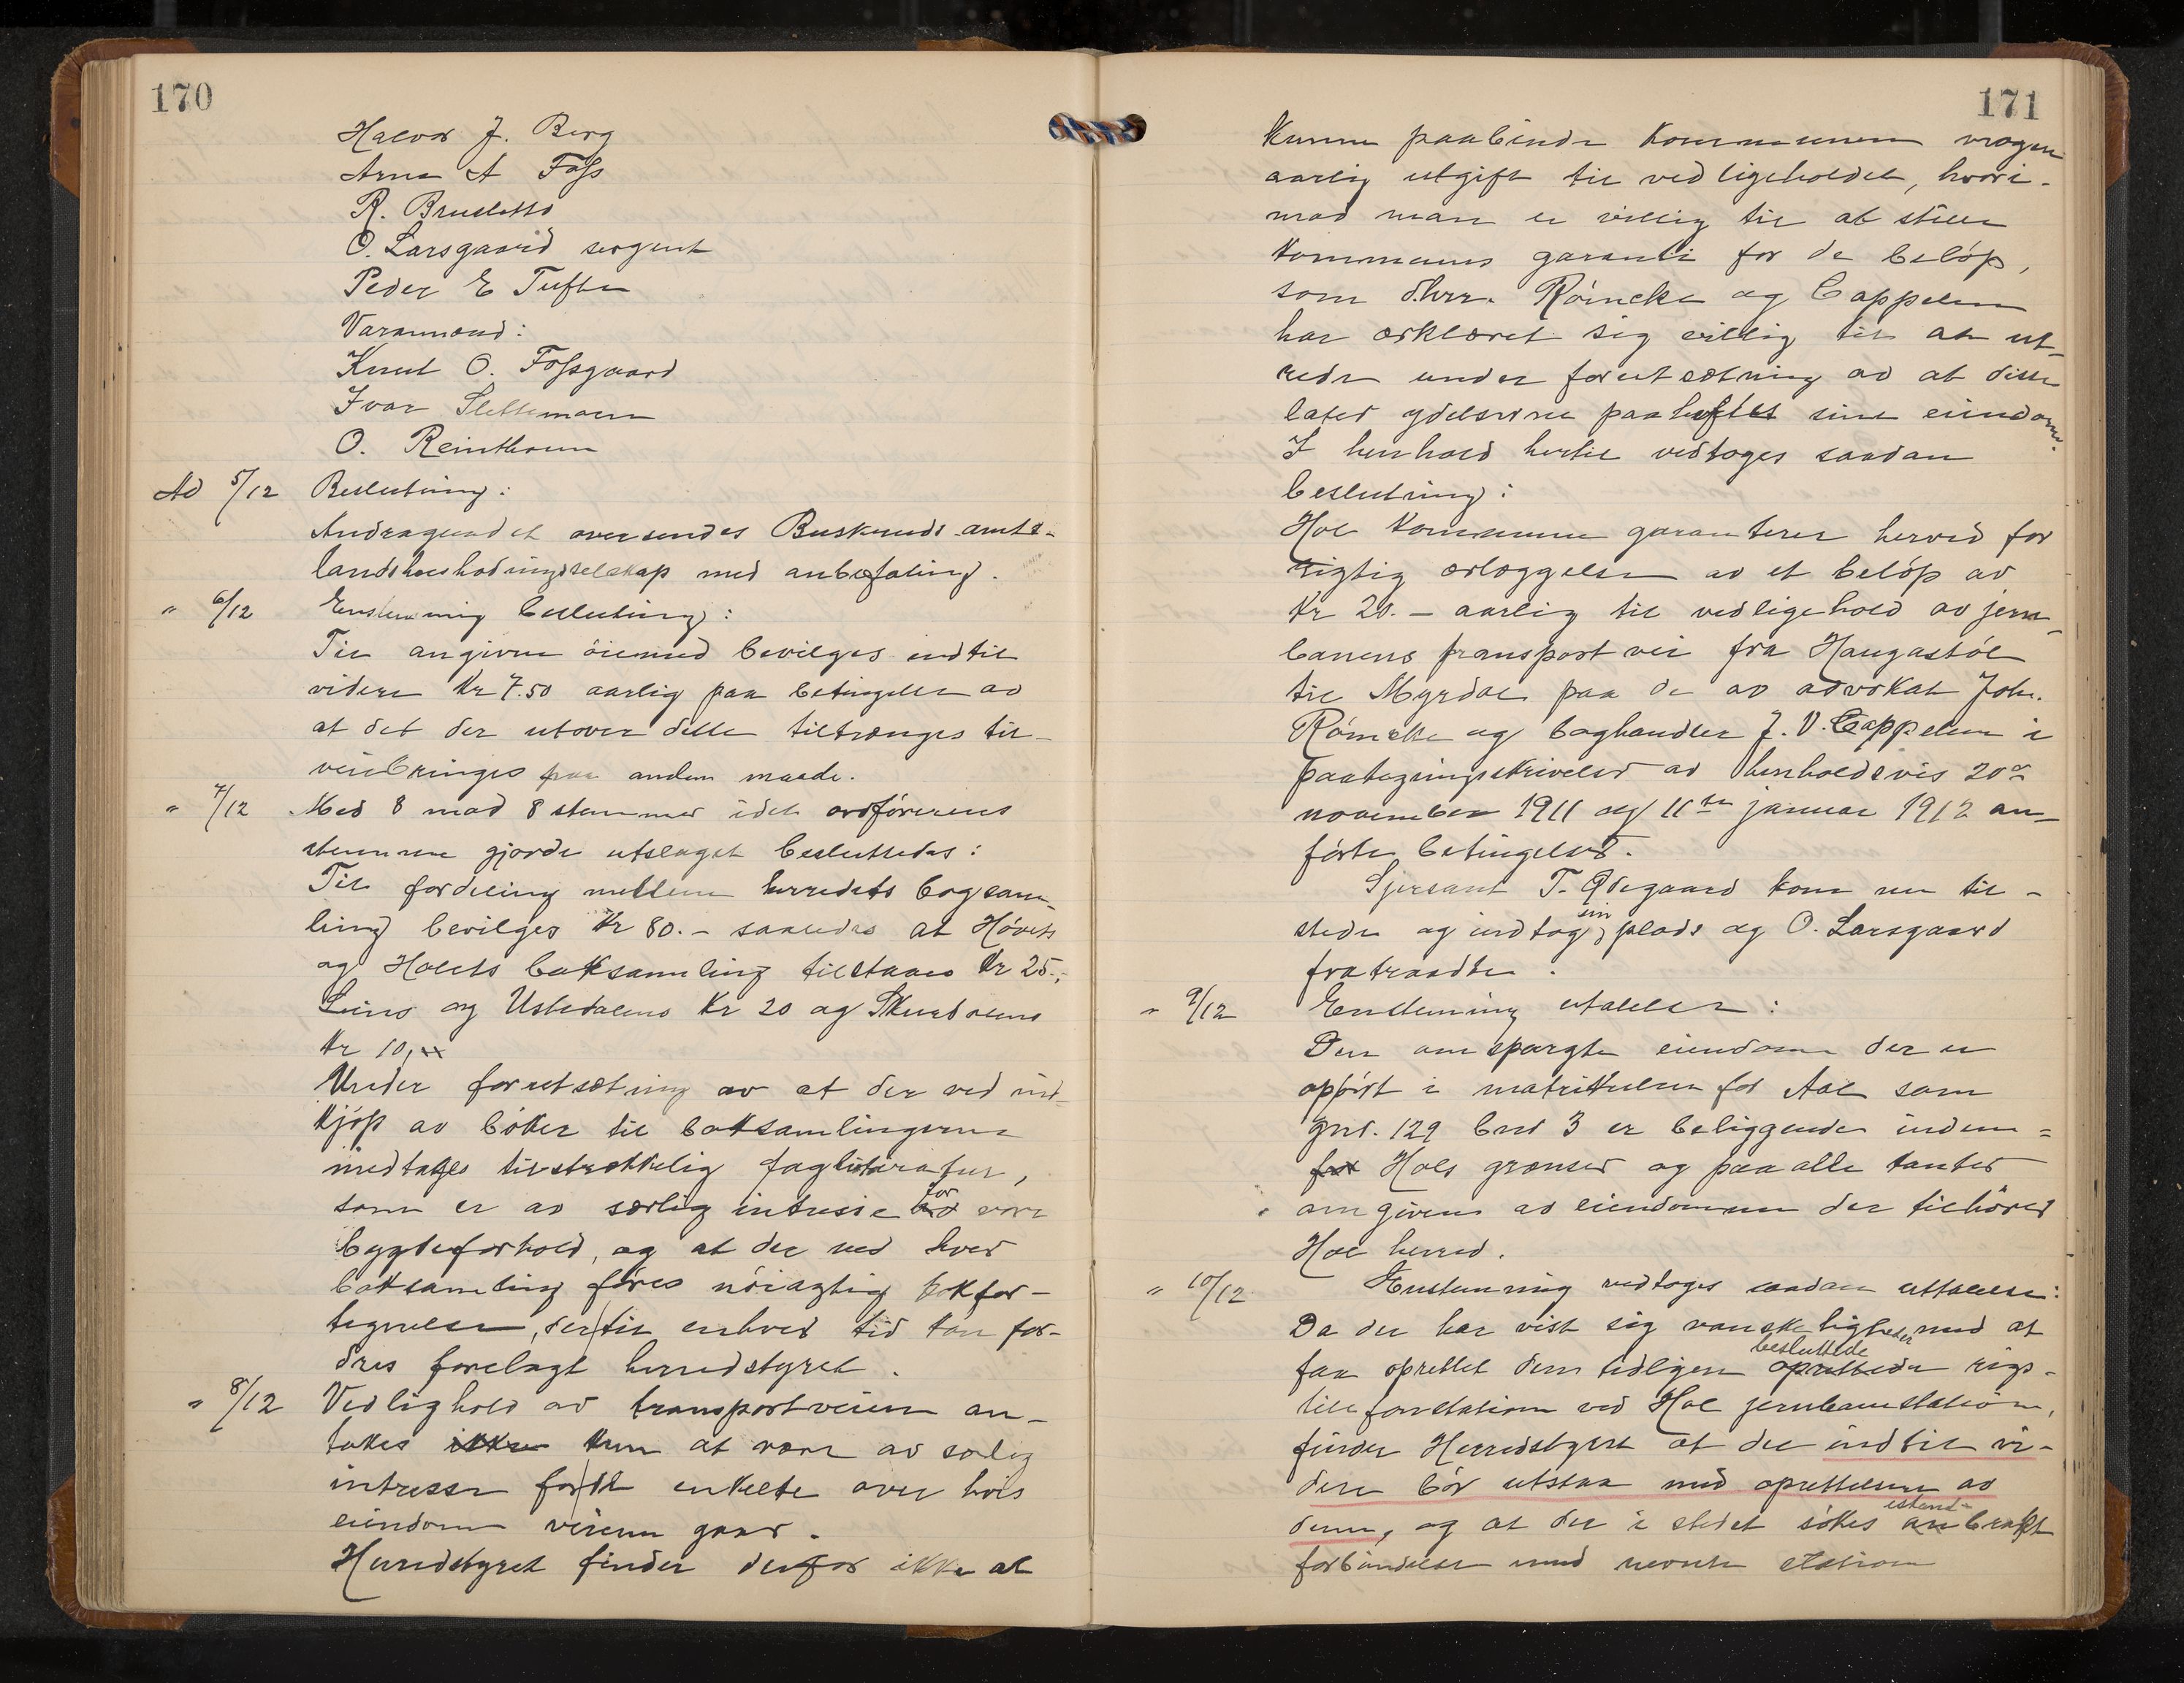 170
Halvor J. Berg
Arne A Foss
R. Brusletto
O. Larsgaard sergent
Peder E Tufte
Varamænd:
Knut O. Fossgaard
Ivar Slettemoen
O. Reinthon
Ad 5/12 Beslutning:
Andragendet oversendes Buskeruds amts-
landshusholdningsselskap med anbefaling.
" 6/12 Enstemmig beslutning:
Til angivne öiemed bevilges indtil
videre Kr 7.50 aarlig paa betingelse av
at det der utover dette tiltrænges til-
veiebringes paa anden maade.
" 7/12 Med 8 mod 8 stemmer idet ordförerens
stemme gjorde utslaget besluttedes:
Til fordeling mellem herredets bogsam-
ling bevilges Kr 80.- saaledes at Hövets
og Holets boksamling tilstaaes Kr 25.-,
Liens og Ustedalens Kr 20 og Skurdalens
Kr 10,
Under forutsætning av at der ved ind-
kjöp av böker til boksamlingerne
medtages tilstrækkelig faglitteratur,
som er av særlig intresse for vore
bygdeforhold, og at der ved hver
boksamling föres nöiagtig bokfor-
tegnelse, der til enhver tid kan for-
dres forelagt herredstyret.
" 8/12 Vedlighold av transportveien an-
takes ikke kun at være av særlig
intresse for de enkelte over hvis
eiendom veien gaar.
Herredstyret finder derfor ikke at
171
kunne paabinde kommunen nogen
aarlig utgift til vedligeholdet, hvori-
mod man er villig til at stille
kommunens garanti for de belöp,
som d'hrr. Röincke og Cappelen
har erklæret sig villig til at ut-
rede under forutsætning av at disse
later ydelserne paaheftet sine eiendomme.
I henhold hertil vedtoges saadan
beslutning:
Hol kommune garanterer herved for
rigtig erlæggelse av et belöp av
Kr 20.- aarlig til vedligehold av jern-
banens transportvei fra Haugastöl
til Myrdal paa de av advokat Joh.
Röincke og boghandler J. V. Cappelen i
paategningsskrivelser av henholdsvis 20de
november 1911 og 11te januar 1912 an-
förte betingelser.
Sjersant T. Ødegaard kom nu til-
stede og indtog sin plads og O. Larsgaard
fratraadte.
" 9/12 Enstemmig uttalelse:
Den omspurgte eiendom der er
opfört i matrikulen for Aal som
gnr. 129 bnr 3 er beliggende inden-
for Hols grænser og paa alle kanter
omgiven av eiendommer der tilhörer
Hol herred.
" 10/12 Enstemmig vedtoges saadan uttalelse:
Da der har vist sig vanskeligheter med at
faa oprettet den tidligere besluttede oprettede rigs-
telefonstation ved Hol jernbanestation,
finder Herredstyret at der indtil vi-
dere bör utstaa med oprettelsen av
denne, og at der i stedet sökes istand- anbrakt
forbindelse med nevnte station